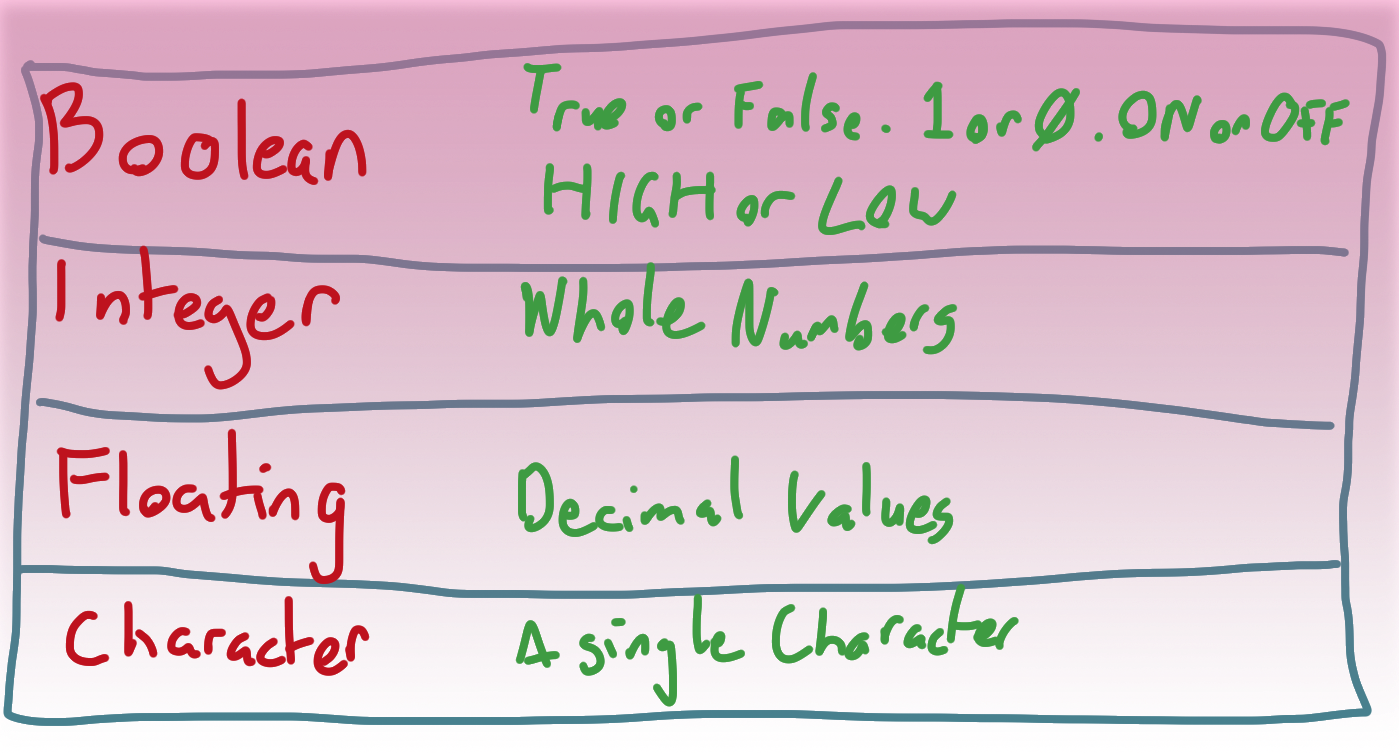 Boolean True or False. 1 or Ø. ON or OFF
HIGH or LOW
Integer Whole Numbers
Floating Decimal Values
Character A single Character